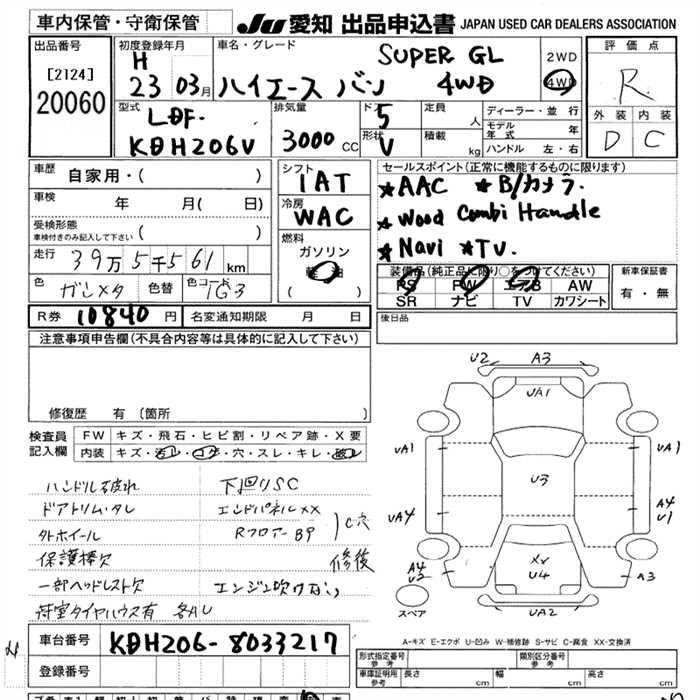 車内保管・守衛保管
JU 愛知 出品申込書 JAPAN USED CAR DEALERS ASSOCIATION
出品番号
[2124]
20060
初度登録年月
H
23 03月
車名・グレード
SUPER GL
ハイエース バン 4WD
2WD
4WD
評価点
R
外装 内装
D C
型式
LDF-
KDH206V
排気量
3000 CC
ド 5
形状 V
定員 人
積載 kg
ディーラー・並行
モデル年式 年
ハンドル 左・右
車歴 自家用・( )
車検 年 月( 日)
受検形態
車検付きのみ記入して下さい ( )
走行 39万5千561 km
色 ガンメタ 色替 色コード 1G3
シフト
IAT
冷房
WAC
燃料
ガソリン
軽油
( )
セールスポイント(正常に機能するものに限ります)
★AAC ★B/カメラ
★Wood Combi Handle
★Navi ★TV.
装備品(純正品に限り〇をつけてください)
PS PW エアB AW
SR ナビ TV カワシート
新車保証書
有・無
R券 10840 円
名変通知期限 月 日
後日品
注意事項申告欄(不具合内容等は具体的に記入して下さい)
修復歴 有(箇所
検査員記入欄
FW キズ・飛石・ヒビ割・リペア跡・X要
内装 キズ・汚レ・コゲ・穴・スレ・キレ・破レ
ハンドル破れ 下回りSC
ドアトリム・タレ エンドパネルXX
外ホイール RフロアーBP
C穴
保護棒欠 修後
一部ヘッドレスト欠 エンジン吹けない
荷室タイヤハウス有 各AU
U2 A3
UA1
UA1 UA1
U3
UA4 A4
U1
XX
U4
A4
U2
A3
UA2
スペア
A-キズ E-エクボ U-凹み W-補修跡 S-サビ C-腐食 XX-交換済
車台番号 KDH206-8033217
登録番号
形式指定番号
参考
類別区分番号
参考
車庫証明用
参考
長さ cm 幅 cm 高さ cm